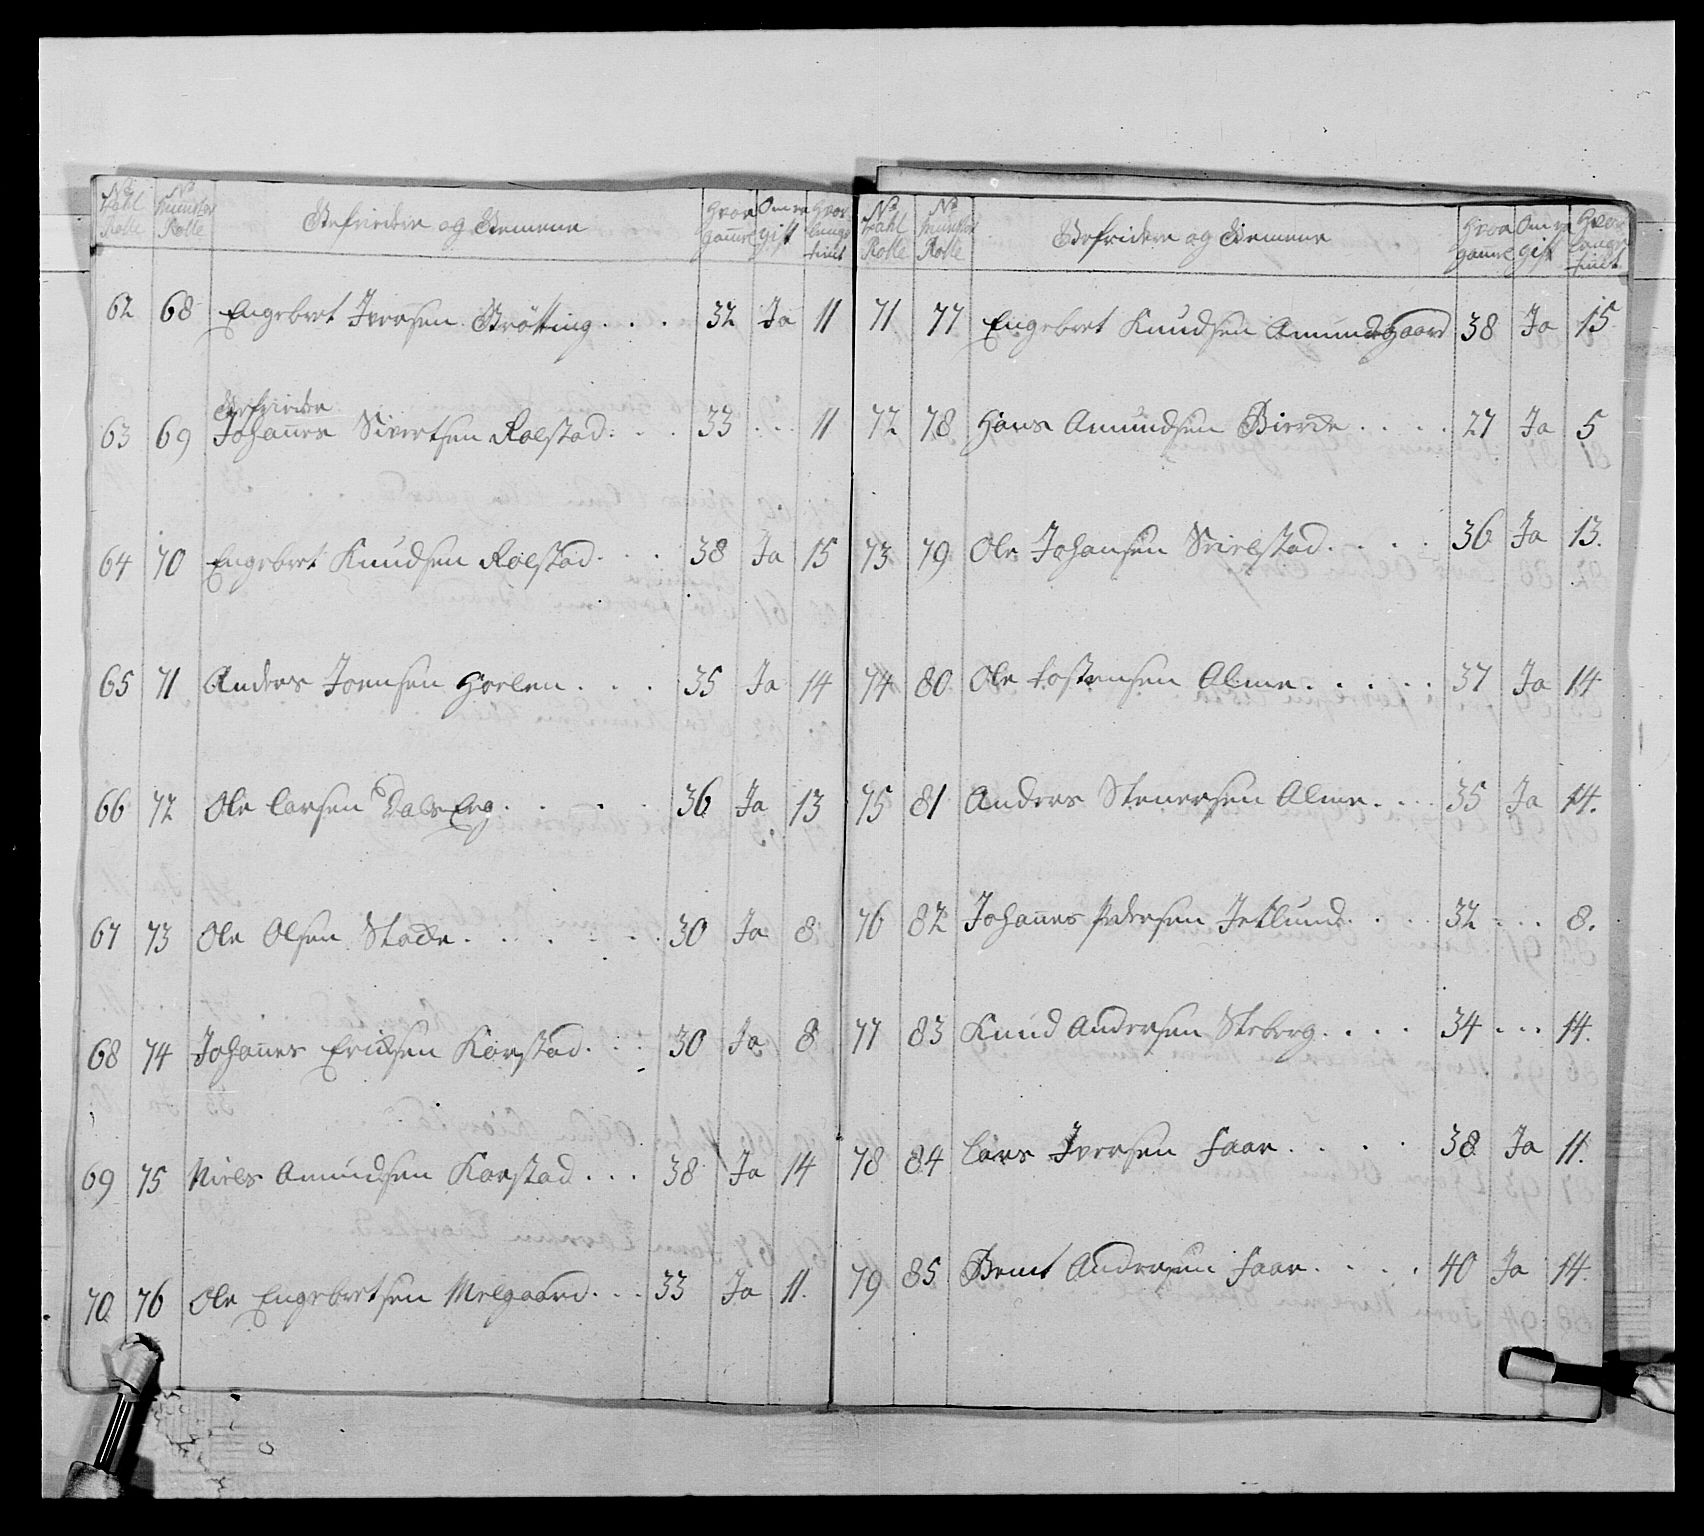 No Tahl Rolle | No Munster Rolle | Befriedere og Gemene | Hvor gamml | Om er gift | Hvor lenge tient
62 68 Engebret Iversen Brötting . . . 32 Ja 11
Befriedere
63 69 Johannes Sivertsen Rolstad . . . 33 . . . 11
64 70 Engebret Knudsen Rolstad . . . 38 Ja 15
65 71 Anders Joensen Horlen . . . 35 Ja 14
66 72 Ole Larsen Dals Eng . . . . 36 Ja 13
67 73 Ole Olsen Stade . . . . . . 30 Ja 8
68 74 Johannes Ericksen Korstad . . . 30 Ja 8
69 75 Niels Amundsen Korstad . . . 38 Ja 14
70 76 Ole Engebretsen Melgaard . . . 33 Ja 11.
No Tahl Rolle | No Munster Rolle | Befridere og Gemene | Hvor gamml | Om er gift | Hvor lenge tient
71 77 Engebret Knudsen Amundsgaard 38 Ja 15
72 78 Hans Amundsen Bierke . . . . 27 Ja 5
73 79 Ole Johansen Sveilstad . . . . 36 Ja 13.
74 80 Ole Tostensen Alme . . . . . . 37 Ja 14
75 81 Anders Stenersen Alme . . . 35 Ja 14.
76 82 Johannes Pedersen Jetlund . . . 32 . . . 8.
77 83 Knud Andersen Steberg . . . . 34 . . . 14.
78 84 Lars Iversen Faar . . . . 38 Ja 11.
79 85 Bernt Andersen Faar . . . . 40 Ja 14.